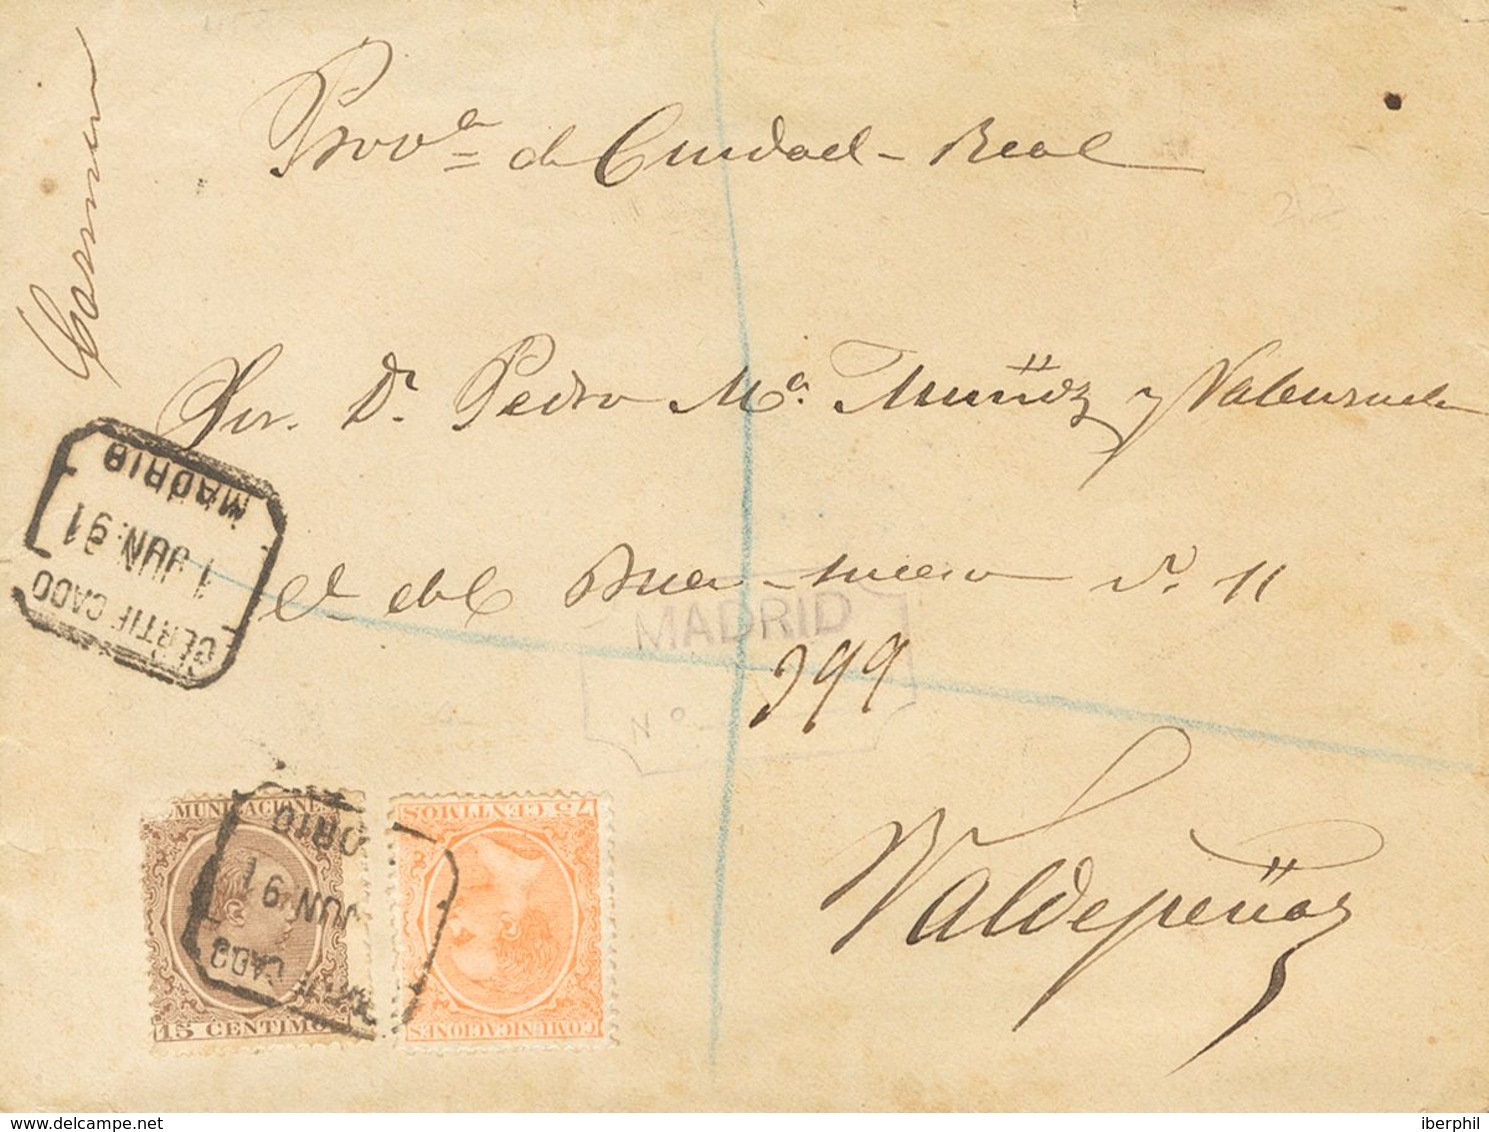 Carmen
Prov.ª de Ciudad-Real
Sr. Dn. Pedro Mª. Muñoz y Valenzuela
Buen-suceso nº. 11
MADRID
Nº
399
Valdepeñas
CERTIFICADO
1 JUN. 91
MADRID
COMUNICACIONES
15 CENTIMOS
CADO
JUN 91
DRID
COMUNICACIONES
75 CENTIMOS
delcampe.net
iberphil